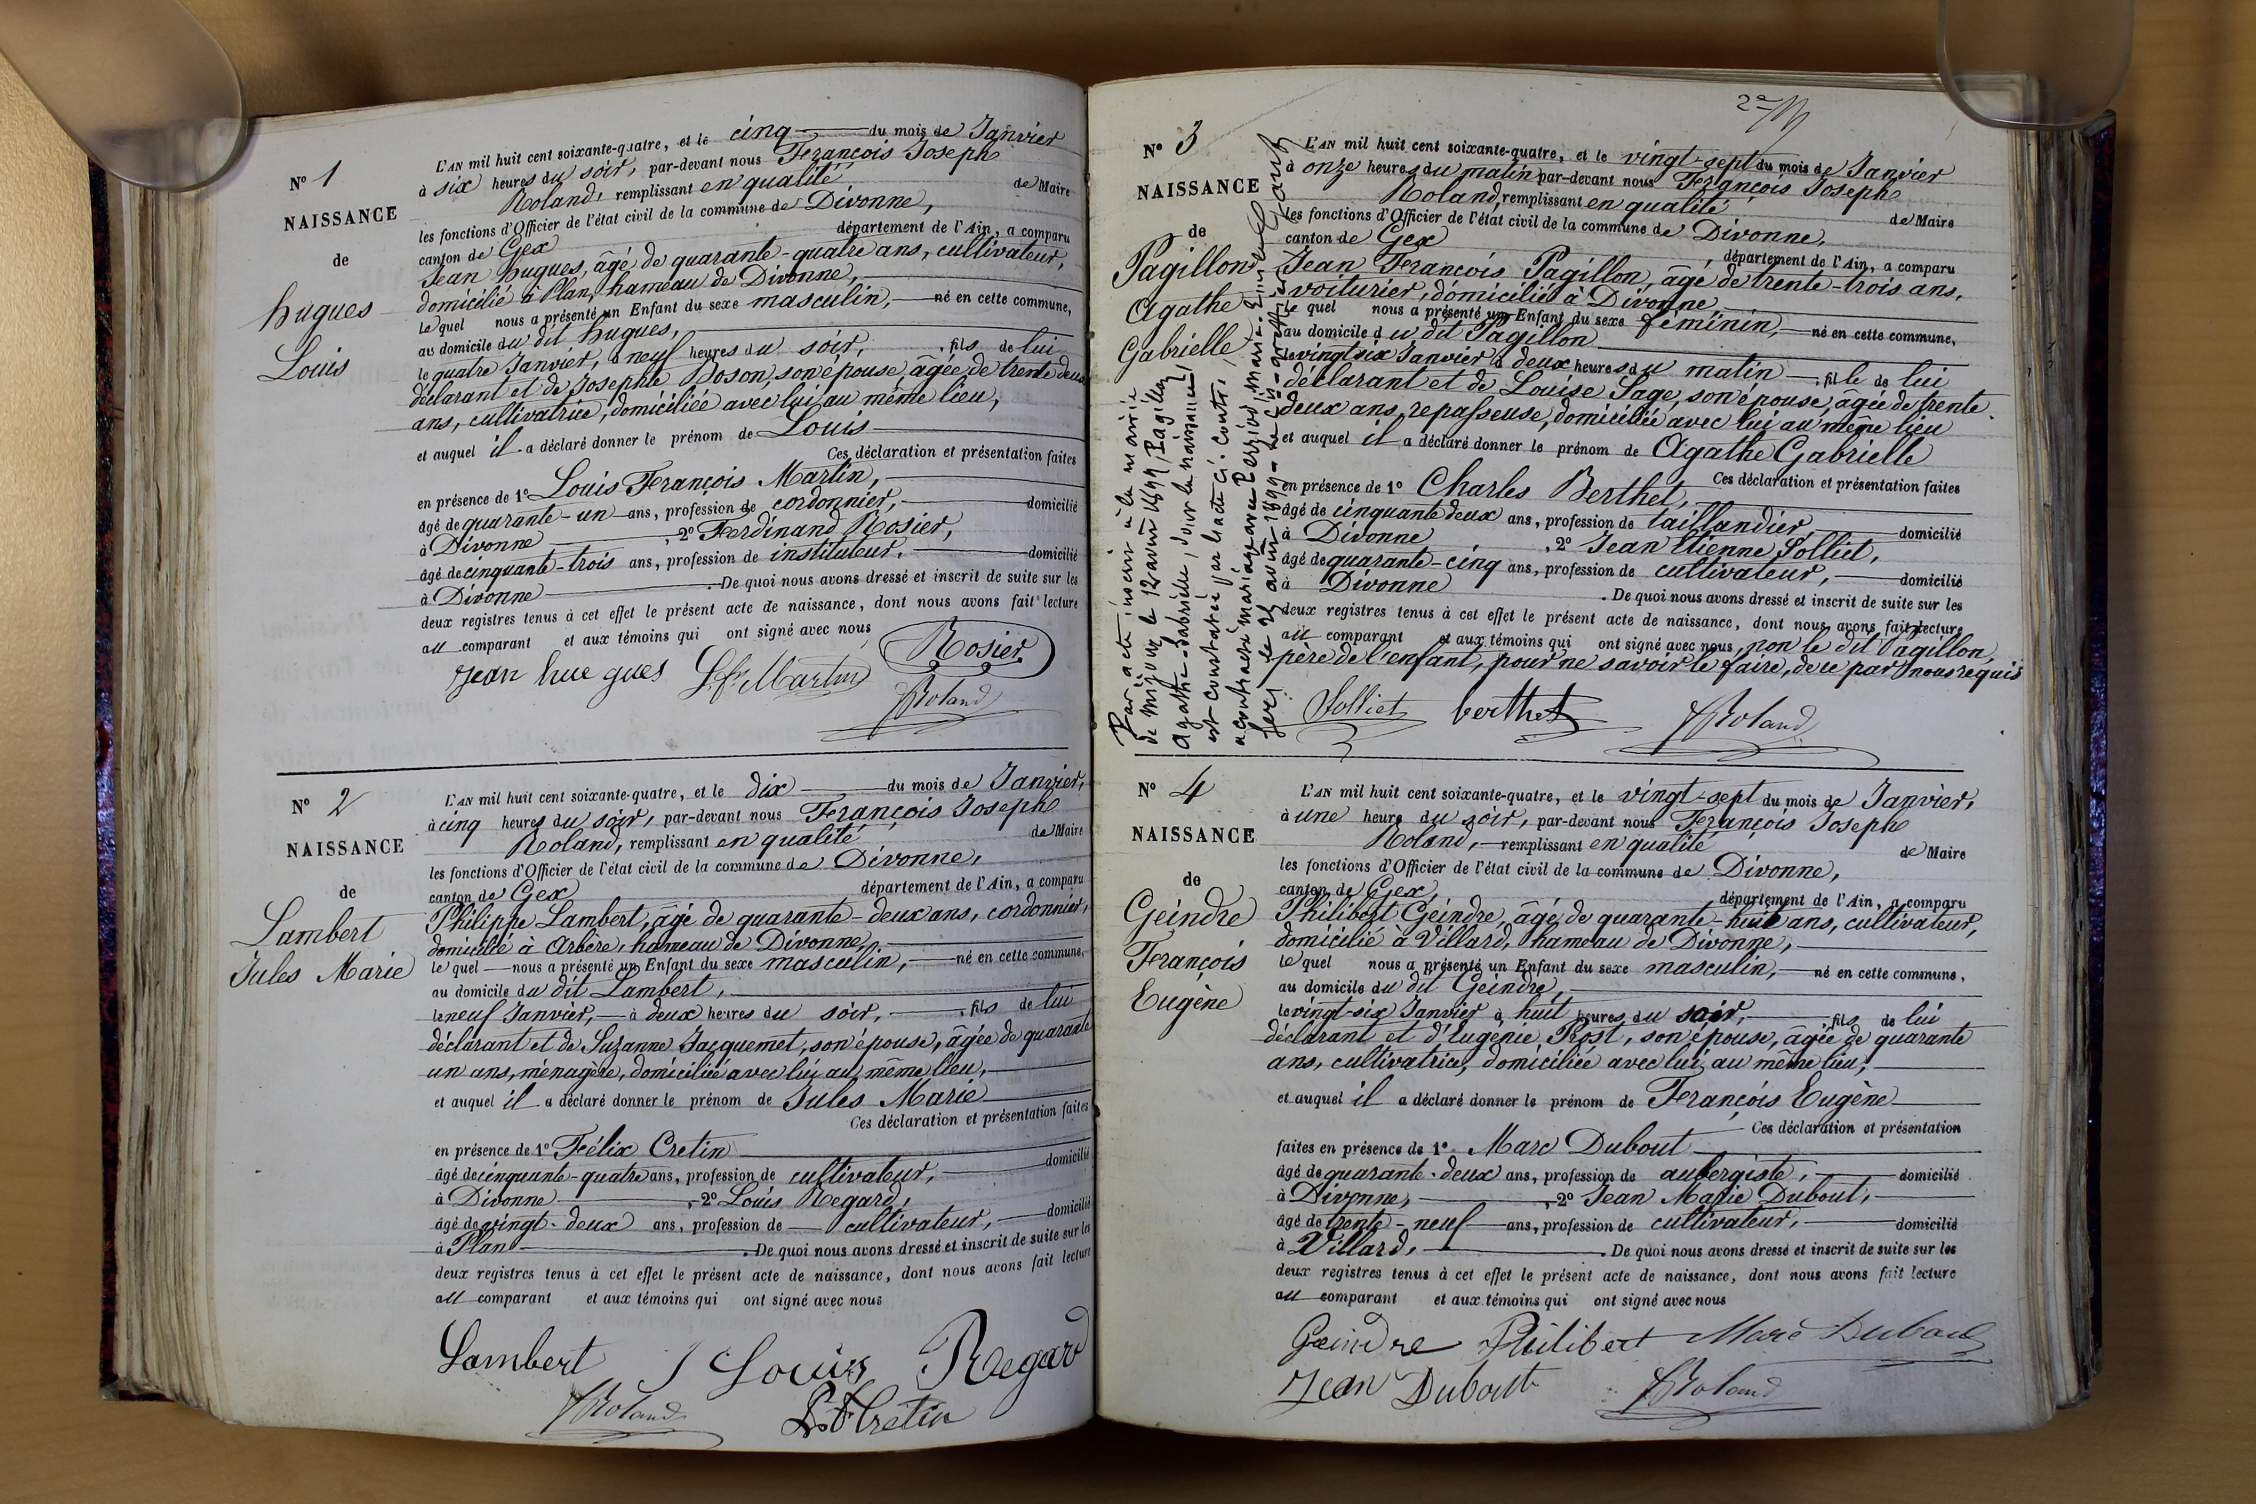 N° 1
NAISSANCE
de
Hugues
Louis
L'AN mil huit cent soixante-quatre, et le cinq du mois de Janvier
à six heures du soir, par-devant nous François Joseph
Roland, remplissant en qualité de Maire
les fonctions d'Officier de l'état civil de la commune de Divonne,
canton de Gex département de l'Ain, a comparu
Jean Hugues, âgé de quarante-quatre ans, cultivateur,
domicilié à Plan, hameau de Divonne,
lequel nous a présenté un Enfant du sexe masculin, né en cette commune,
au domicile du dit Hugues,
le quatre Janvier, à neuf heures du soir, fils de lui
déclarant et de Josephte Boson, son épouse, âgée de trente deux
ans, cultivatrice, domiciliée avec lui au même lieu,
et auquel il a déclaré donner le prénom de Louis
Ces déclaration et présentation faites
en présence de 1° Louis François Martin,
âgé de quarante-un ans, profession de cordonnier, domicilié
à Divonne, 2° Ferdinand Rosier,
âgé de cinquante-trois ans, profession de instituteur, domicilié
à Divonne. De quoi nous avons dressé et inscrit de suite sur les
deux registres tenus à cet effet le présent acte de naissance, dont nous avons fait lecture
au comparant et aux témoins qui ont signé avec nous
Jean hue gues L. fs Martin Rosier
JRoland
N° 2
NAISSANCE
de
Lambert
Jules Marie
L'AN mil huit cent soixante-quatre, et le dix du mois de Janvier,
à cinq heures du soir, par-devant nous François Joseph
Roland, remplissant en qualité de Maire
les fonctions d'Officier de l'état civil de la commune de Divonne,
canton de Gex département de l'Ain, a comparu
Philippe Lambert, âgé de quarante-deux ans, cordonnier,
domicilié à Arbère, hameau de Divonne,
lequel nous a présenté un Enfant du sexe masculin, né en cette commune,
au domicile du dit Lambert,
le neuf Janvier, à deux heures du soir, fils de lui
déclarant et de Suzanne Jacquemet, son épouse, âgée de quarante
un ans, ménagère, domiciliée avec lui au même lieu,
et auquel il a déclaré donner le prénom de Jules Marie
Ces déclaration et présentation faites
en présence de 1° Félix Cretin
âgé de cinquante-quatre ans, profession de cultivateur, domicilié
à Divonne, 2° Louis Regard,
âgé de vingt-deux ans, profession de cultivateur, domicilié
à Plan. De quoi nous avons dressé et inscrit de suite sur les
deux registres tenus à cet effet le présent acte de naissance, dont nous avons fait lecture
au comparant et aux témoins qui ont signé avec nous
Lambert Louis Regard
JRoland Cretin
2e
N° 3
NAISSANCE
de
Pagillon
Agathe
Gabrielle
Par acte inscrit à la mairie
de Mijoux le 12 avril 1899, Pagillon
Agathe-Gabrielle, dont la naissance
est constatée par l'acte ci-contre,
a contracté mariage avec Perriod, Marie-
L'AN mil huit cent soixante-quatre, et le vingt-sept du mois de Janvier
à onze heures du matin par-devant nous François Joseph
Roland, remplissant en qualité de Maire
les fonctions d'Officier de l'état civil de la commune de Divonne,
canton de Gex, département de l'Ain, a comparu
Jean François Pagillon, âgé de trente-trois ans,
voiturier, domicilié à Divonne
le quel nous a présenté un Enfant du sexe féminin, né en cette commune,
au domicile du dit Pagillon
le vingt six Janvier à deux heures du matin, fille de lui
déclarant et de Louise Sage, son épouse, âgée de trente
deux ans, repasseuse, domiciliée avec lui au même lieu
et auquel il a déclaré donner le prénom de Agathe Gabrielle
Ces déclaration et présentation faites
en présence de 1° Charles Berthet,
âgé de cinquante deux ans, profession de taillandier, domicilié
à Divonne, 2° Jean Etienne Solliet,
âgé de quarante-cinq ans, profession de cultivateur, domicilié
à Divonne. De quoi nous avons dressé et inscrit de suite sur les
deux registres tenus à cet effet le présent acte de naissance, dont nous avons fait lecture
au comparant et aux témoins qui ont signé avec nous, non le dit Pagillon
père de l'enfant, pour ne savoir le faire, de ce par nous requis
Solliet berthet JRoland
N° 4
NAISSANCE
de
Geindre
François
Eugène
L'AN mil huit cent soixante-quatre, et le vingt-sept du mois de Janvier,
à une heure du soir, par-devant nous François Joseph
Roland, remplissant en qualité de Maire
les fonctions d'Officier de l'état civil de la commune de Divonne,
canton de Gex, département de l'Ain, a comparu
Philibert Geindre, âgé de quarante-huit ans, cultivateur,
domicilié à Villard, hameau de Divonne,
le quel nous a présenté un Enfant du sexe masculin, né en cette commune,
au domicile du dit Geindre,
le vingt-six Janvier à huit heures du soir, fils de lui
déclarant et d'Eugénie Rost, son épouse, âgée de quarante
ans, cultivatrice, domiciliée avec lui au même lieu,
et auquel il a déclaré donner le prénom de François Eugène
Ces déclaration et présentation
faites en présence de 1° Marc Dubout
âgé de quarante-deux ans, profession de aubergiste, domicilié
à Divonne, 2° Jean Marie Dubout,
âgé de trente-neuf ans, profession de cultivateur, domicilié
à Villard. De quoi nous avons dressé et inscrit de suite sur les
deux registres tenus à cet effet le présent acte de naissance, dont nous avons fait lecture
au comparant et aux témoins qui ont signé avec nous
Geindre Philibert Marc Dubout
Jean Dubout JRoland